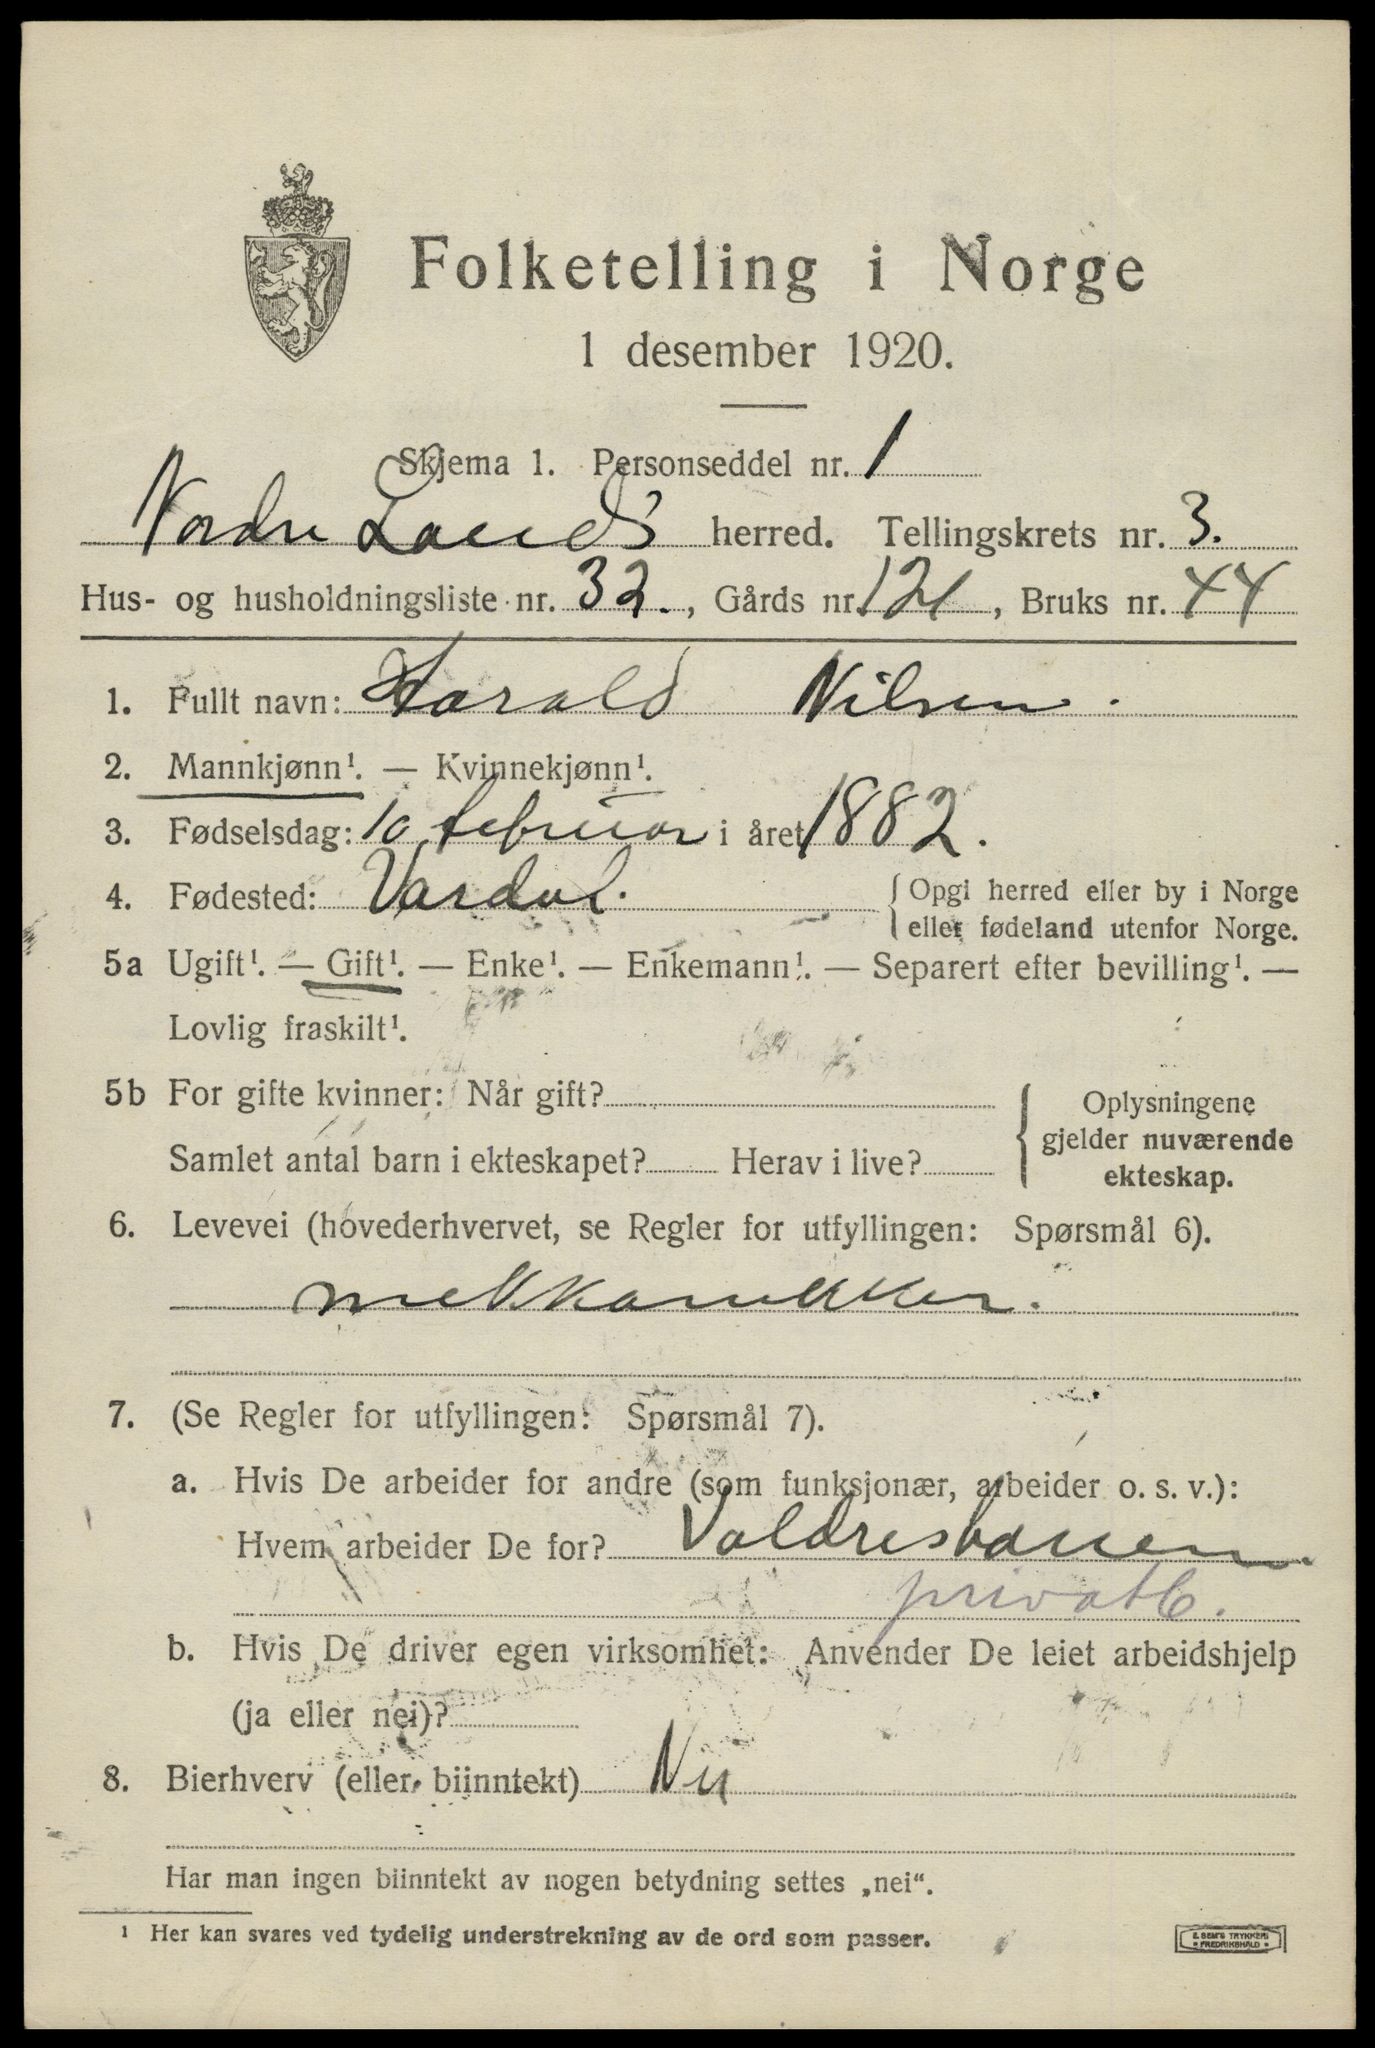 Folketelling i Norge
1 desember 1920.
Skjema 1. Personseddel nr. 1
Nordre Lands herred. Tellingskrets nr. 3.
Hus- og husholdningsliste nr. 32., Gårds nr. 121, Bruks nr. 44
1. Fullt navn: Harald Nilsen.
2. Mannkjønn¹. — Kvinnekjønn¹.
3. Fødselsdag: 10 februar i året 1882.
4. Fødested: Vardal. Opgi herred eller by i Norge
eller fødeland utenfor Norge.
5a Ugift¹. — Gift¹. — Enke¹. — Enkemann¹. — Separert efter bevilling¹. —
Lovlig fraskilt¹.
5b For gifte kvinner: Når gift? Oplysningene
gjelder nuværende
Samlet antal barn i ekteskapet? Herav i live? ekteskap.
6. Levevei (hovederhvervet, se Regler for utfyllingen: Spørsmål 6).
mekkanikker.
7. (Se Regler for utfyllingen: Spørsmål 7).
a. Hvis De arbeider for andre (som funksjonær, arbeider o. s. v.):
Hvem arbeider De for? Valdresbanen.
privat
b. Hvis De driver egen virksomhet: Anvender De leiet arbeidshjelp
(ja eller nei)?
8. Bierhverv (eller biinntekt) Nei
Har man ingen biinntekt av nogen betydning settes „nei“.
¹ Her kan svares ved tydelig understrekning av de ord som passer.
E. SEM'S TRYKKERI
• FREDRIKSHALD •